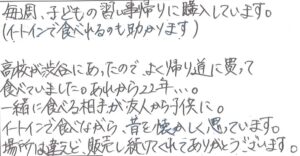 毎週、子どもの習い事帰りに購入しています。
(イートインで食べれるのも助かります)
高校が渋谷にあったので、よく帰り道に買って
食べていました。あれから22年...。
一緒に食べる相手が友人から子供に。
イートインで食べながら、昔を懐かしく思っています。
場所は違えど、販売し続けてくれてありがとうございます。